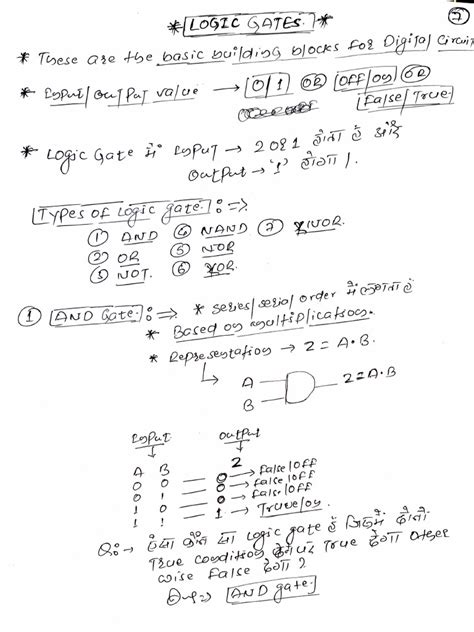 * LOGIC GATES. * 7
* These are the basic building blocks for Digital Circuit
* Input/Output value → 0/1 OR OFF/ON OR
False/True.
* Logic Gate में Input → 2 या 1 होता है और
Output → '1' होगा।
Types of Logic gate. :⇒
① AND ④ NAND ⑦ XNOR.
② OR ⑤ NOR
③ NOT. ⑥ XOR.
① AND Gate. :⇒ * series/serial order में लगाता है
* Based on multiplication.
* Representation → Z = A·B.
A
B
Z = A·B
Input Output
A B Z
0 0 — 0 → False/OFF
0 1 — 0 → False/OFF
1 0 — 0 → False/OFF
1 1 — 1 → True/on
Q:→ ऐसा कौन सा Logic gate है जिसमें दोनों
True condition होने पर True होगा other
wise False होगा ?
⇒ AND gate.